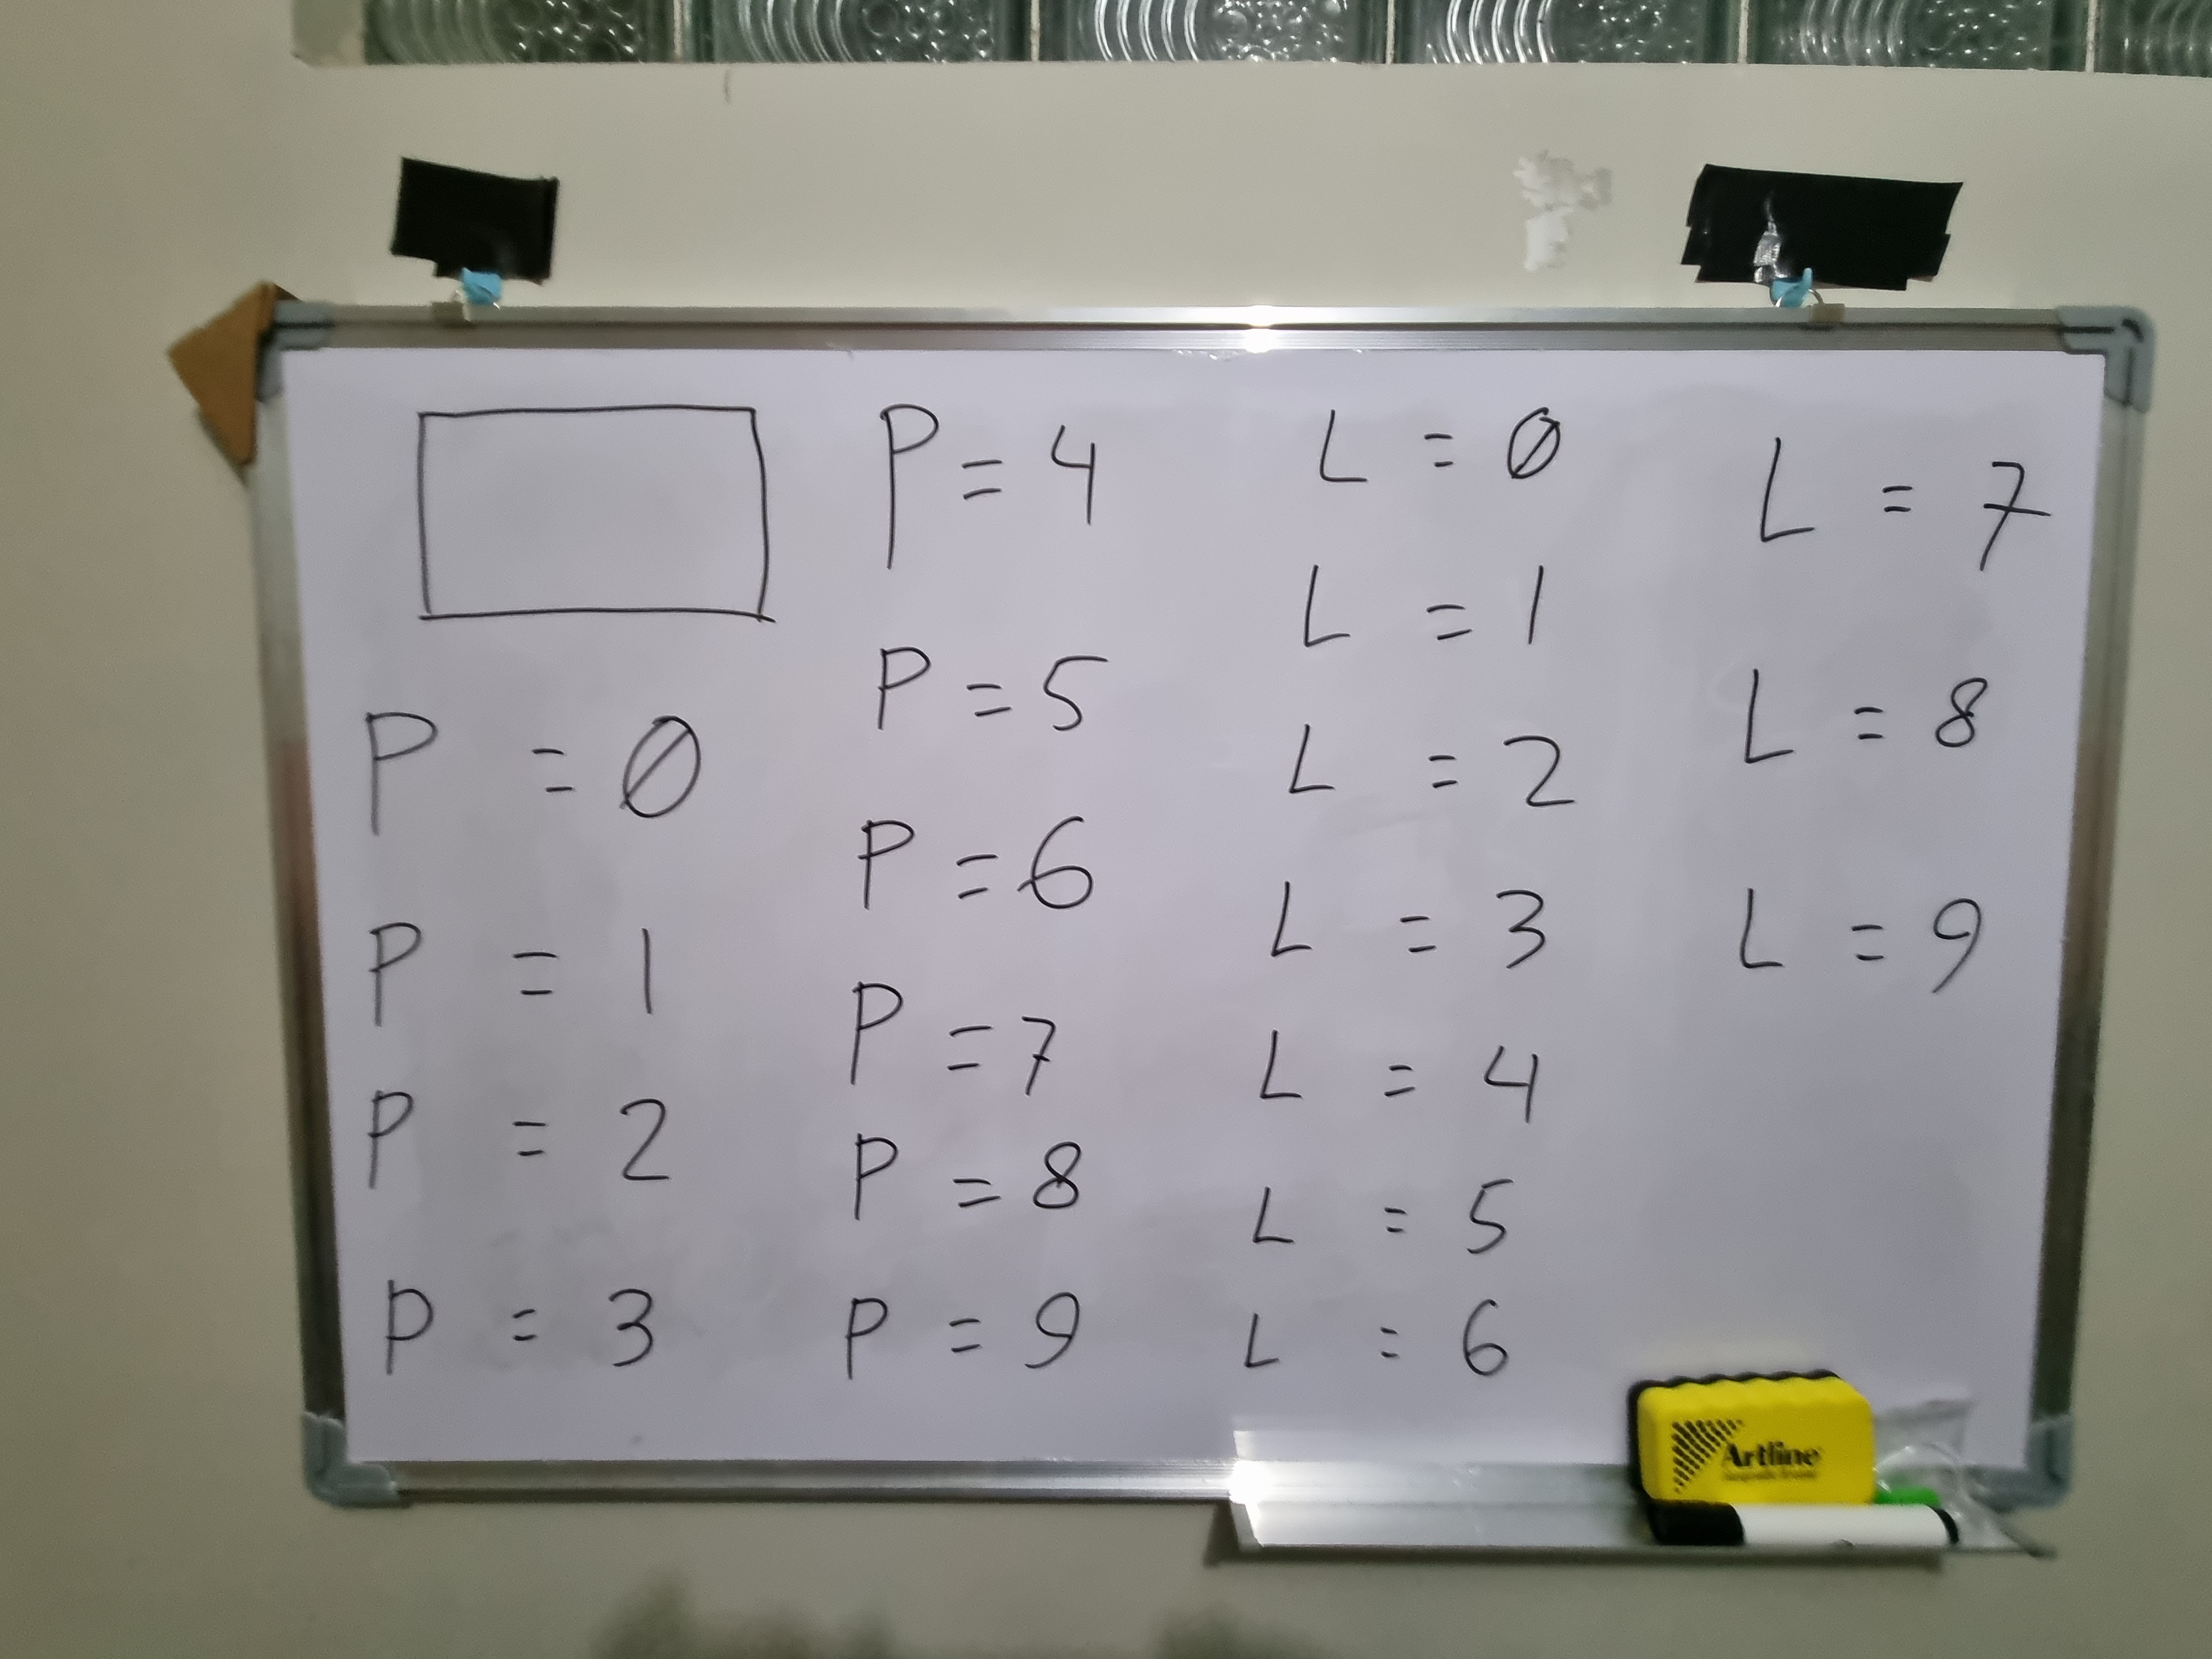 P = Ø
P = 1
P = 2
P = 3
P = 4
P = 5
P = 6
P = 7
P = 8
P = 9
L = Ø
L = 1
L = 2
L = 3
L = 4
L = 5
L = 6
L = 7
L = 8
L = 9
Artline